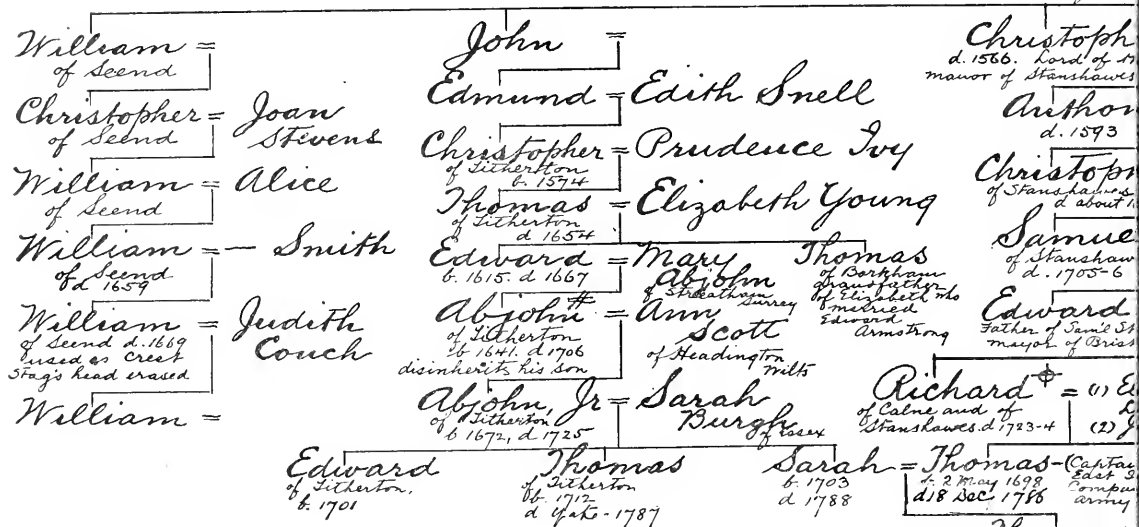 William =
of Seend
Christopher = Joan
of Seend Stevens
William = Alice
of Seend
William = — Smith
of Seend
d 1659
William = Judith
of Seend d. 1669 Couch
used as crest
Stag's head erased
William =
John =
Edmund = Edith Snell
Christopher = Prudence Ivy
of Titherton
b. 1574
Thomas = Elizabeth Young
of Titherton
d 1654
Edward = Mary
b. 1615. d 1667 Abjohn
of Streatham
Surrey
Thomas
of Barkham
grandfather
of Elizabeth who
married
Edward
Armstrong
Abjohn # = Ann
of Titherton Scott
b 1641. d 1706 of Headington
disinherits his son Wilts
Abjohn, Jr = Sarah
of Titherton Burgh
b 1672, d 1725 of Essex
Edward
of Titherton,
b. 1701
Thomas
of Titherton
b. 1712
d Yate - 1787
Sarah = Thomas - (Captai
b. 1703 b. 2 May 1698 East
d 1788 d 18 Dec 1786 Compan
army
Christoph
d. 1566. Lord of
manor of Stanshawes
Anthon
d. 1593
Christoph
of Stanshawes
d about 1
Samue
of Stanshaw
d. 1705-6
Edward
Father of Sam'l St
mayor of Brist
Richard = (1) E
of Calne and of
Stanshawes. d 1723-4 (2) J